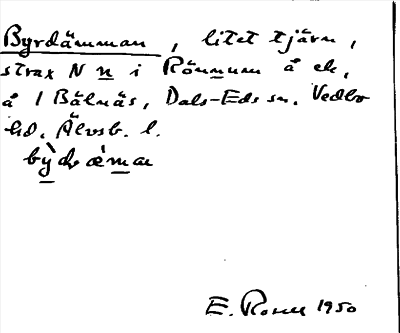 Byrdämman, litet tjärn,
strax N n i Rönnum å ek,
å 1 Bälnäs, Dals-Eds sn. Vedbo
hd. Älvsb. l.
E. Rosell 1950